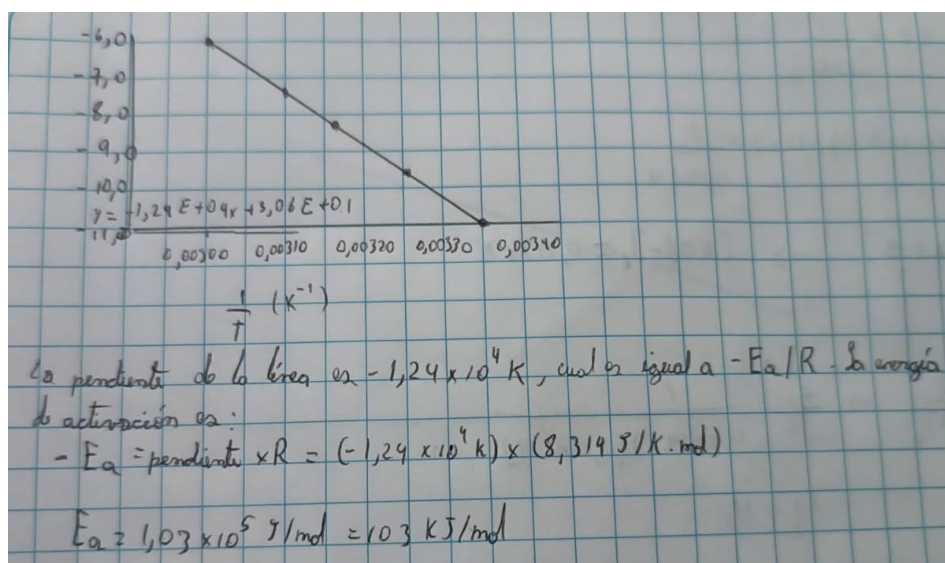 -6,0
-7,0
-8,0
-9,0
-10,0
y = -1,24 E+04x +3,06E+01
-11,0
0,00300 0,00310 0,00320 0,00330 0,00340
1/T (K⁻¹)
La pendiente de la línea es -1,24 x 10⁴ K, cual es igual a -Ea/R. La energía
de activación es:
- Ea = pendiente x R = (-1,24 x10⁴ k) x (8,314 J/K.mol)
Ea = 1,03 x10⁵ J/mol = 103 KJ/mol